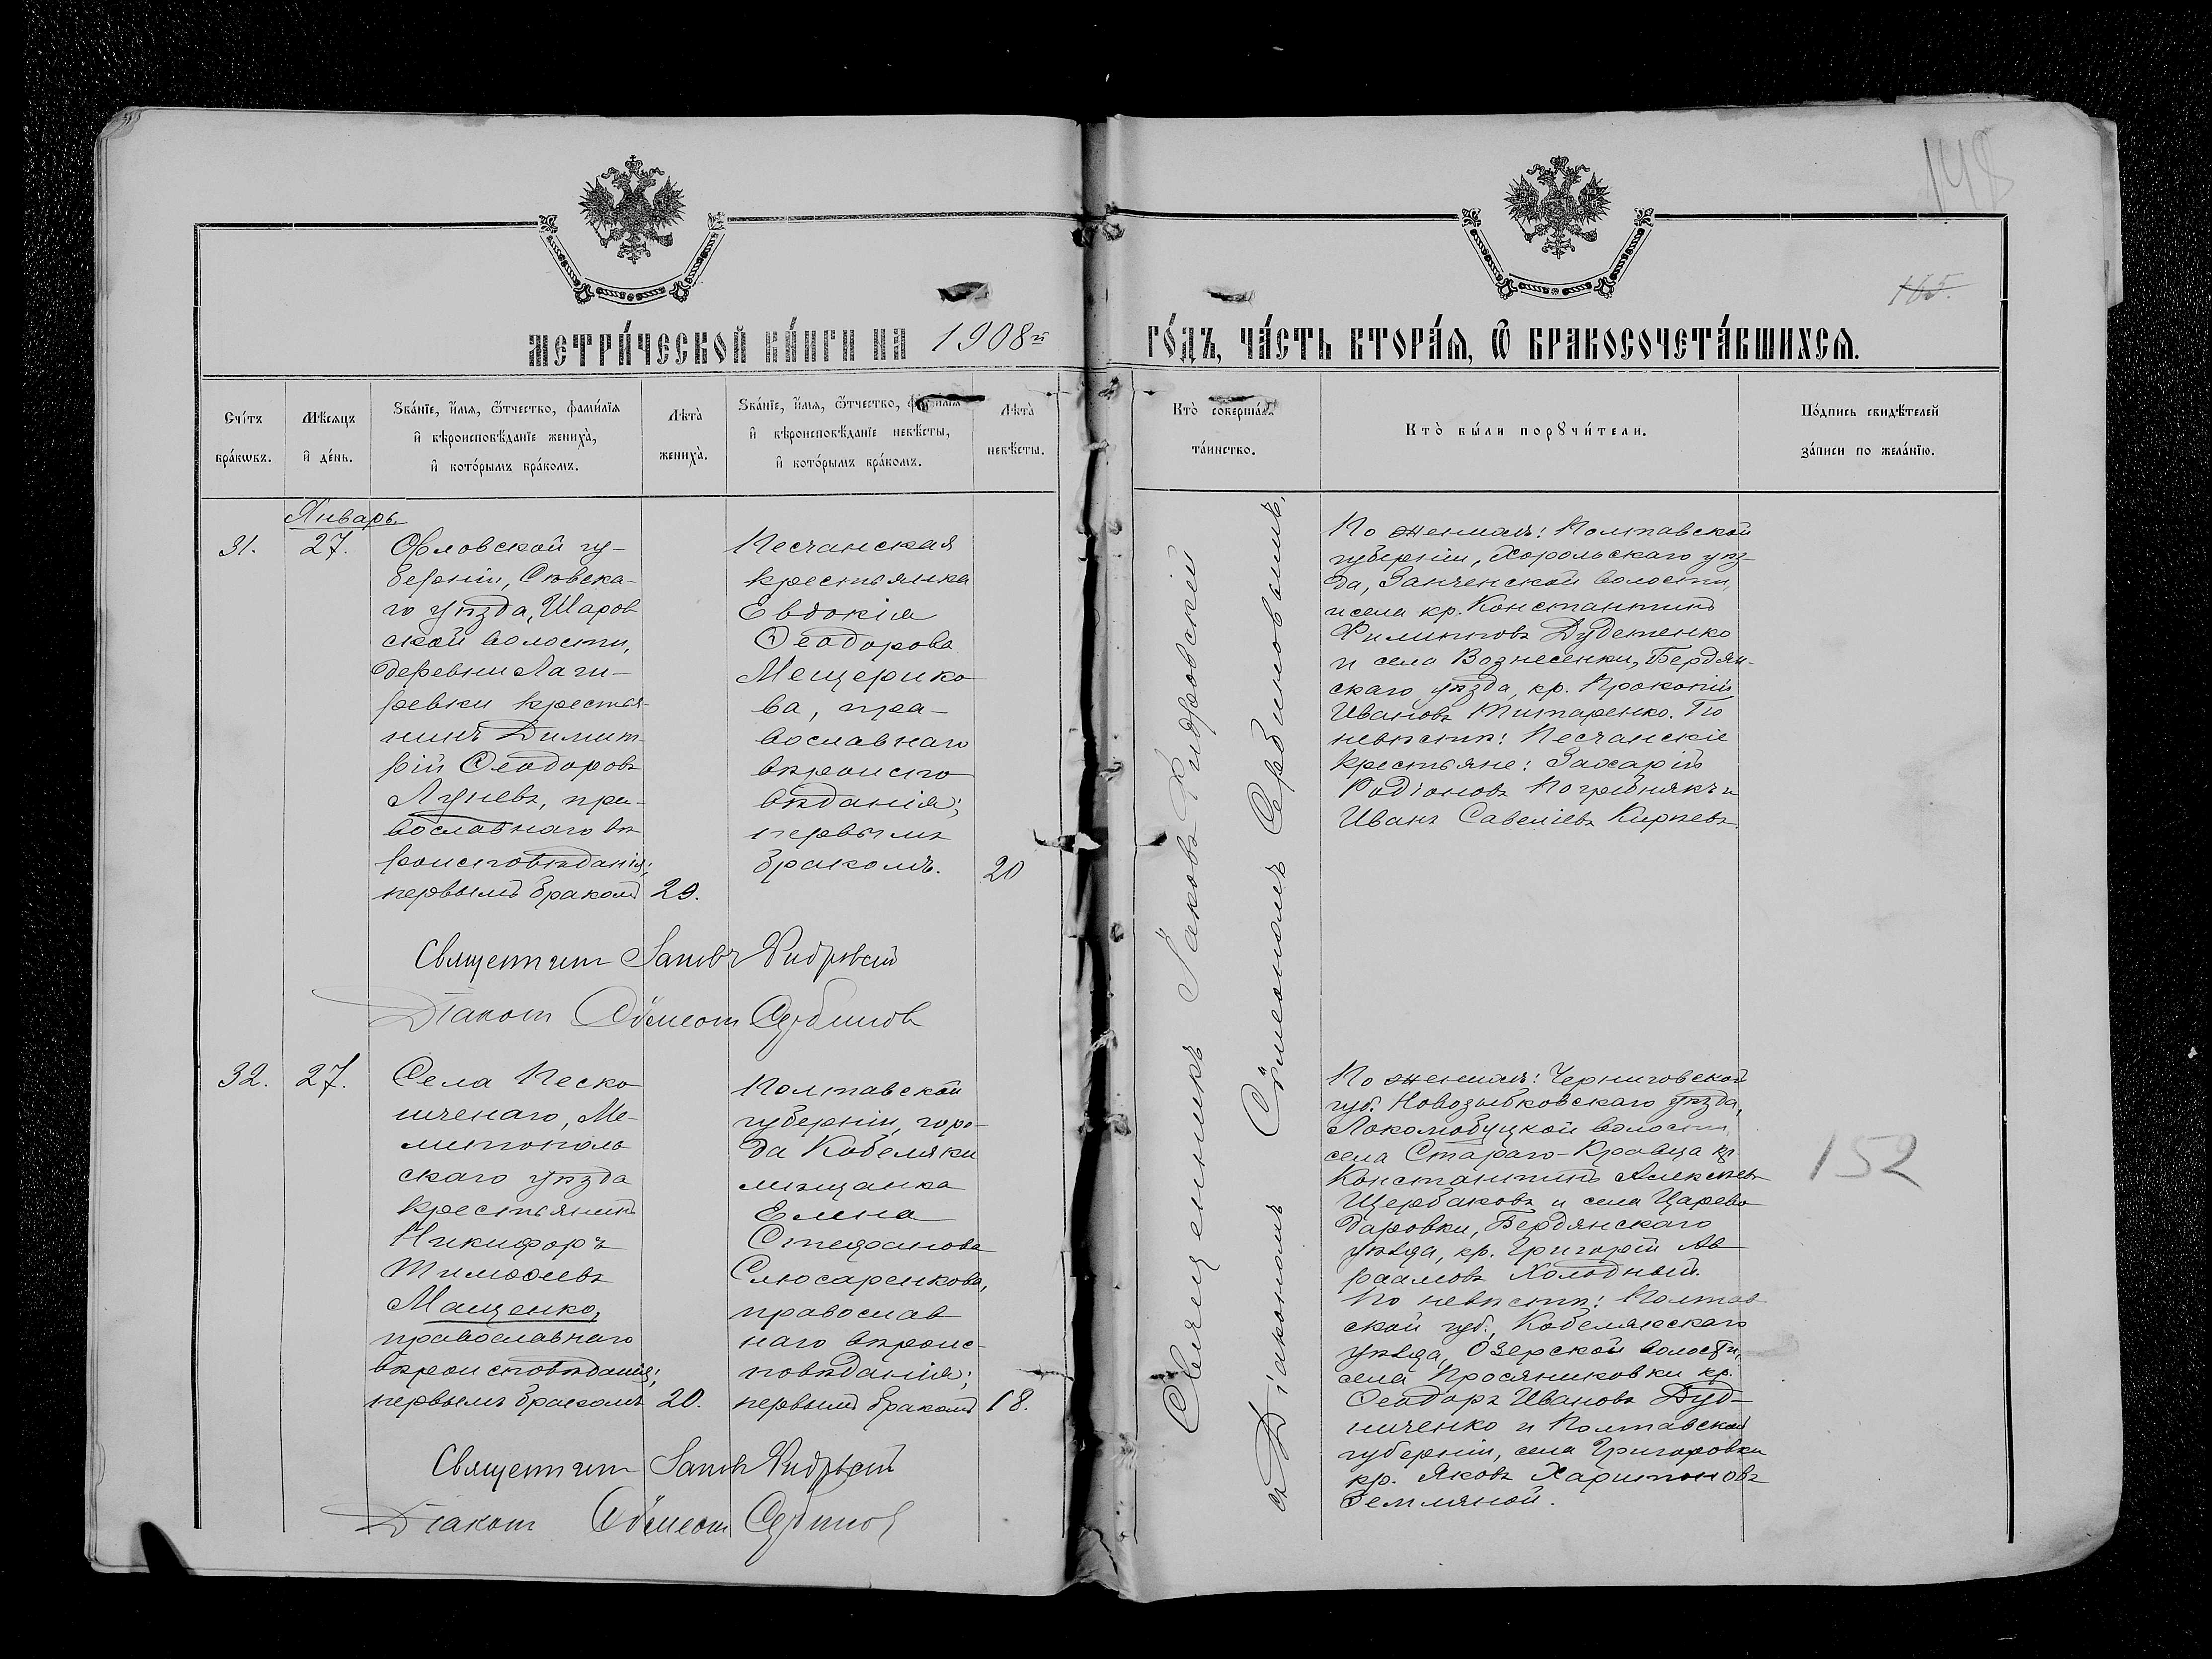 148
165.
МЕТРИ́ЧЕСКОЙ КНИ́ГИ НА 1908й
ГО́ДЪ, ЧА́СТЬ ВТОРА́Я, Ѿ БРАКОСОЧЕТА́ВШИХСЯ.
Сче́тъ бра́кѡвъ.
Мѣ́сяцъ и҆ де́нь.
Ѕва́нїе, и҆́мя, ѻ҆́тчество, фами́лїя
и҆ вѣроисповѣ́данїе жениха̀,
и҆ кото́рымъ бра́комъ.
Лѣта̀ жениха̀.
Ѕва́нїе, и҆́мя, ѻ҆́тчество, фами́лїя
и҆ вѣроисповѣ́данїе невѣ́сты,
и҆ кото́рымъ бра́комъ.
Лѣта̀ невѣ́сты.
Кто̀ соверша́лъ
та́инство.
Кто̀ бы́ли порꙋчи́тели.
По́дпись свидѣ́телей
за́писи по жела́нїю.
Январь
31.
27.
Орловской гу-
берніи, Сѣвска-
го уѣзда, Шаров
ской волости,
деревни Лаги-
ревки крестья-
нинъ Димит-
рій Ѳеодоровъ
Луневъ, пра-
вославнаго вѣ
роисповѣданія;
первымъ бракомъ
29.
Песчанская
крестьянка
Евдокія
Ѳеодорова
Мещерико
ва, пра-
вославнаго
вѣроиспо
вѣданія;
первымъ
бракомъ.
20
Священникъ Іаковъ
Діаконъ Сѵмеонъ Сербиновъ
Священникъ Іаковъ
съ Діакономъ Сѵмеономъ Сербиновымъ.
По женихѣ: Полтавской
губерніи, Хорольскаго уѣз-
да, волости,
и села кр. Константинъ
Филипповъ
и села Вознесенки, Бердян-
скаго уѣзда, кр. Прокопій
Ивановъ Титаренко. По
невѣстѣ: Песчанскіе
крестьяне: Захарій
Родіоновъ Погребнякъ и
Иванъ Савеліевъ Кирѣевъ.
32.
27.
Села Песко
шченаго, Ме-
литополь
скаго уѣзда
крестьянинъ
Никифоръ
Тимоѳеевъ
Мащенко,
православнаго
вѣроисповѣданія;
первымъ бракомъ
20.
Полтавской
губерніи, горо-
да Кобеляки
мѣщанка
Елена
Стефанова
Слюсаренкова,
православ
наго вѣроис-
повѣданія;
первымъ бракомъ
18.
Священникъ Іаковъ
Діаконъ Сѵмеонъ Сербиновъ
По женихѣ: Черниговской
губ. Новозыбковскаго уѣзда,
волости,
села Стараго-Кривца кр.
Константинъ Алексѣевъ
Щербаковъ и села Царево
даровки, Бердянскаго
уѣзда, кр. Григорій Ав
раамовъ Холодный.
По невѣстѣ: Полтав
ской губ., Кобелякскаго
уѣзда, Озерской волости,
села Просяниковки кр.
Ѳеодоръ Ивановъ Дуд-
ниченко и Полтавской
губерніи, села Григоровки
кр. Яковъ Харитоновъ
Земляной.
152